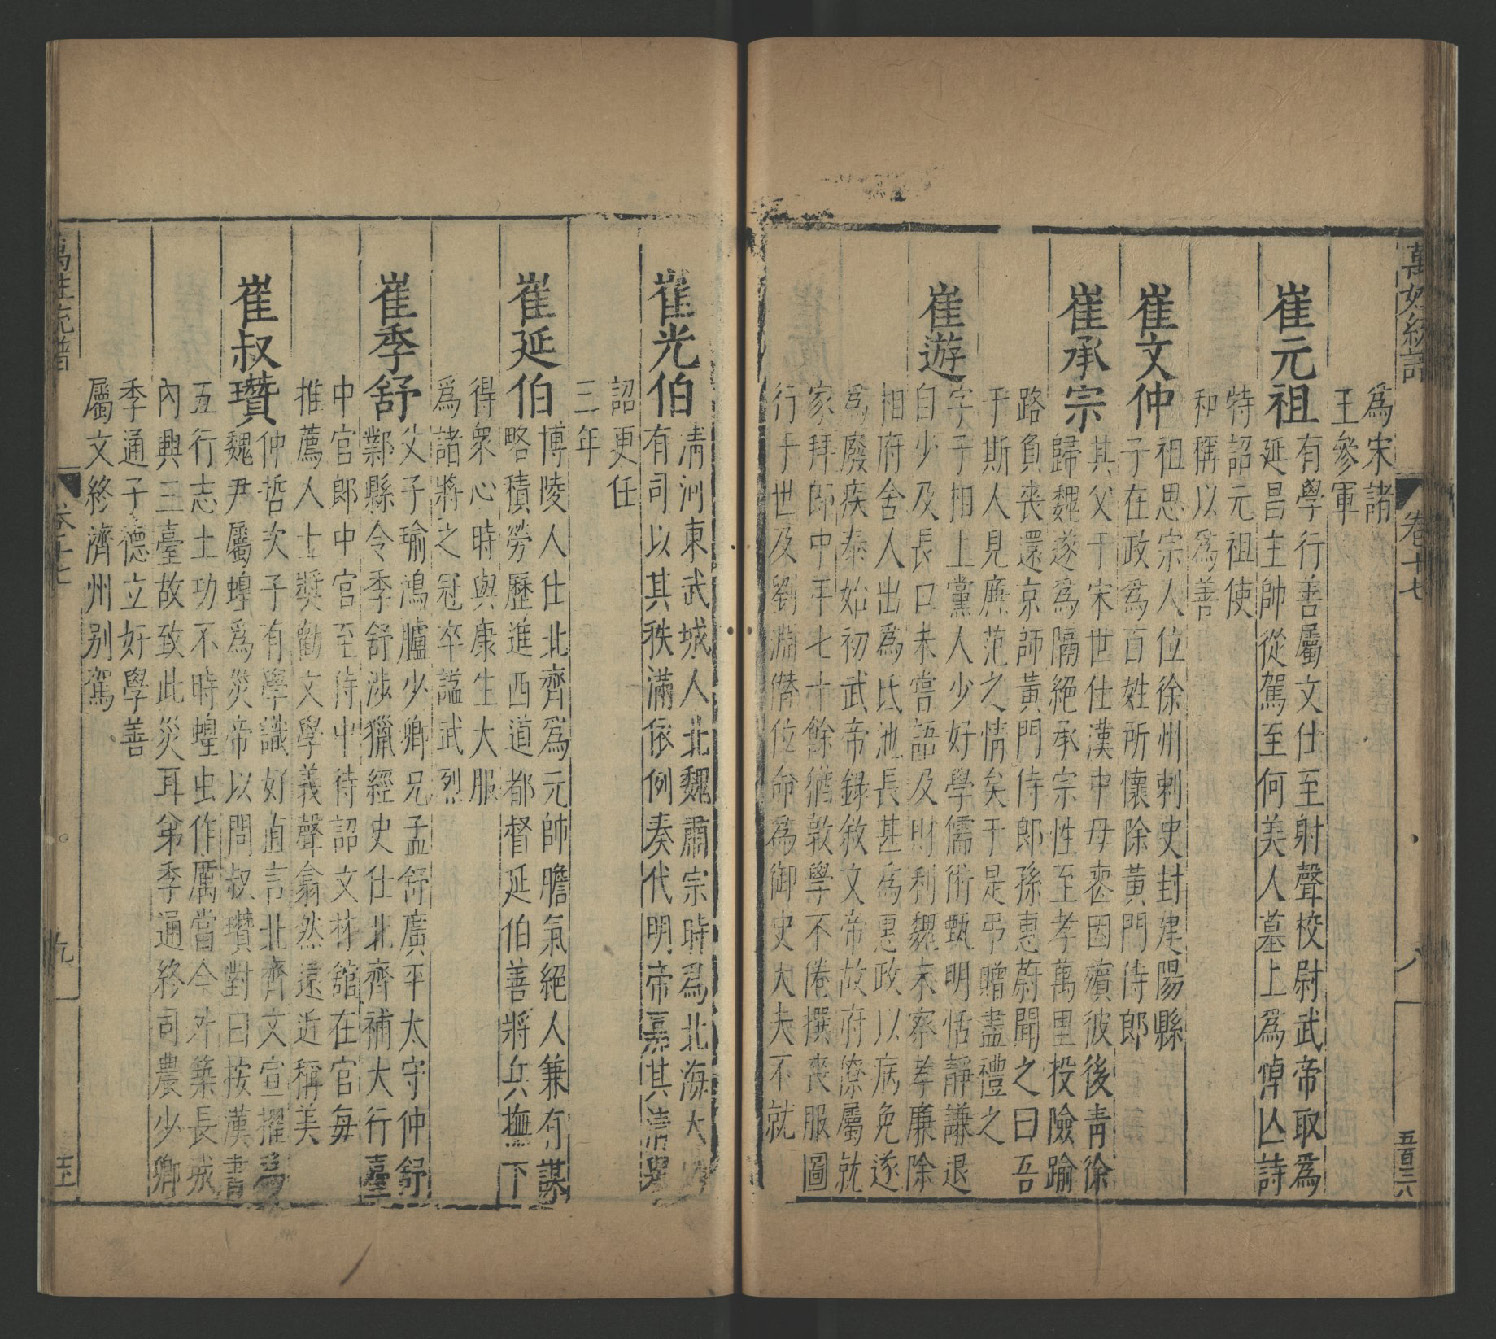 萬姓統譜 卷十七 八 五百三八
爲宋諸
王參軍
崔元祖
有學行善屬文仕至射聲校尉武帝取爲
延昌主帥從駕至何美人墓上爲悼亡詩
特詔元祖使
和稱以爲善
崔文仲
祖思宗人位徐州刺史封建陽縣
子在政爲百姓所懷除黃門侍郎
崔承宗
其父于宋世仕漢中母喪因殯彼後青徐
歸魏遂爲隔絕承宗性至孝萬里投險踰
路負喪還京師黃門侍郎孫惠蔚聞之曰吾
于斯人見廉范之情矣于是弔贈盡禮之
崔遊
字子相上黨人少好學儒術甄明恬靜謙退
自少及長口未嘗語及財利魏末察孝廉除
相府舍人出爲氐池長甚爲惠政以病免遂
爲廢疾泰始初武帝錄敘文帝故府僚屬就
家拜郎中年七十餘猶敦學不倦撰喪服圖
行于世及劉淵僭位命爲御史大夫不就
崔光伯
清河東武城人北魏肅宗時爲北海太守
有司以其秩滿依例奏代明帝嘉其清
詔更任
三年
崔延伯
博陵人仕北齊爲元帥膽氣絕人兼有謀
略積勞歷進西道都督延伯善將兵撫下
得衆心時與康生大服
爲諸將之冠卒謚武烈
崔季舒
父子瑜鴻臚少卿兄孟舒廣平太守仲舒
鄴縣令季舒涉獵經史仕北齊補大行臺
中官郎中官至侍中待詔文林館在官每
推薦人士獎勸文學義聲翕然遠近稱美
崔叔瓚
仲哲次子有學識好直言北齊文宣擢爲
魏尹屬蝗爲災帝以問叔瓚對曰按漢書
五行志土功不時蝗虫作厲當今外築長城
內興三臺故致此災耳弟季通終司農少卿
季通子德立好學善
屬文終濟州別駕
萬姓統譜 卷十七 九